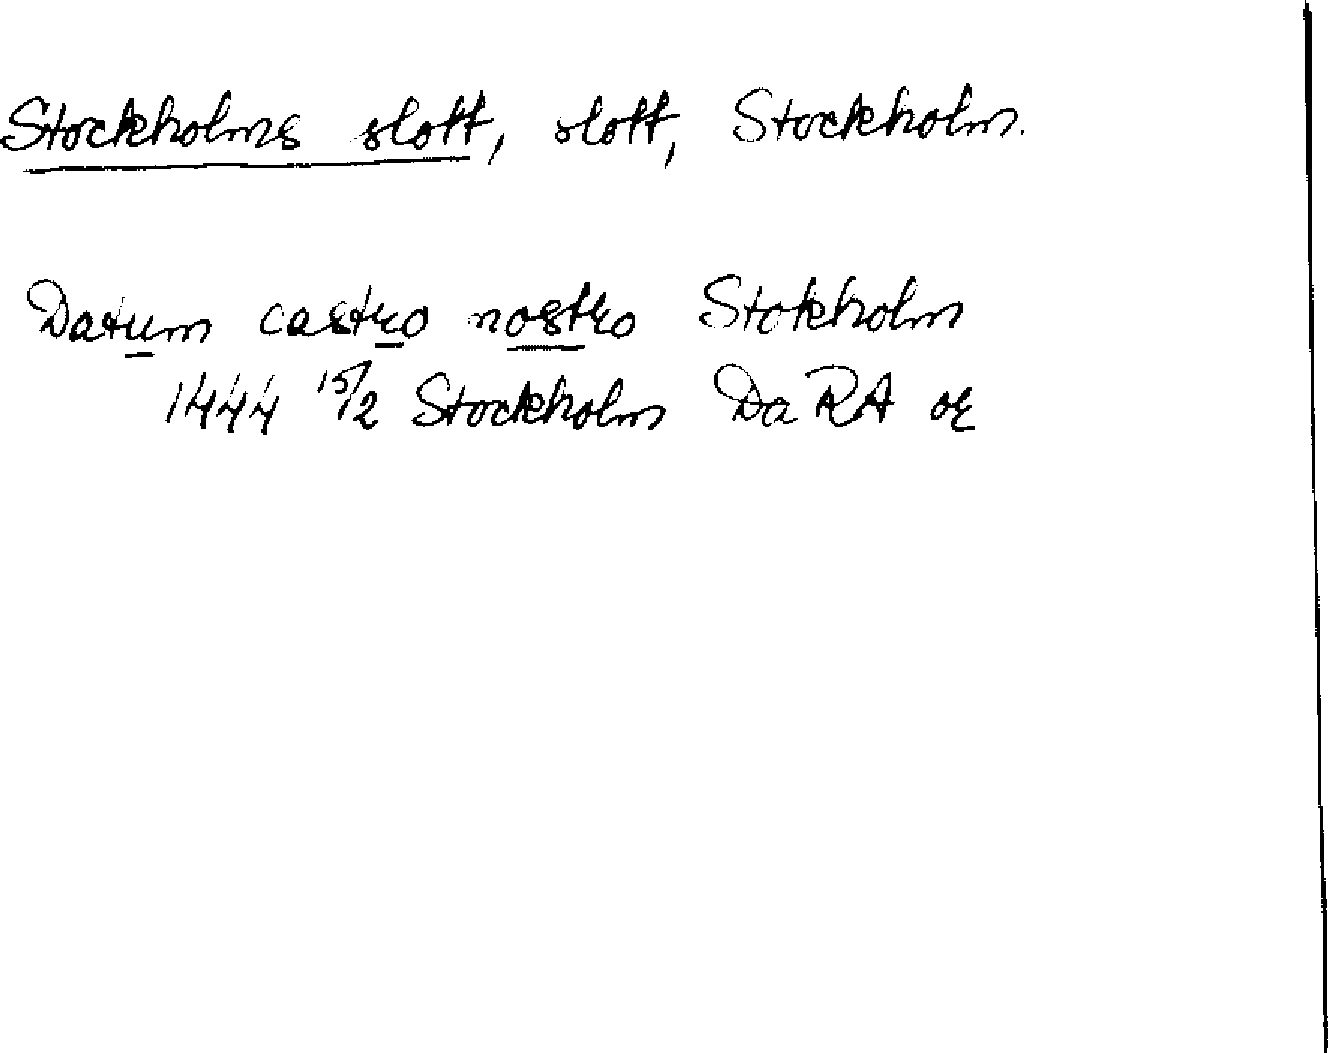 Stockholms slott, slott, Stockholm.
Datum castro nostro Stokholm
1444 15/2 Stockholm Da RA or